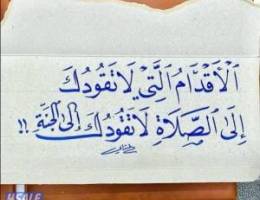 الْأَقْدَامُ الَّتِي لَا تَقُودُكَ
إِلَى الصَّلَاةِ لَا تَقُودُكَ إِلَى الْجَنَّةِ !!
4SALE